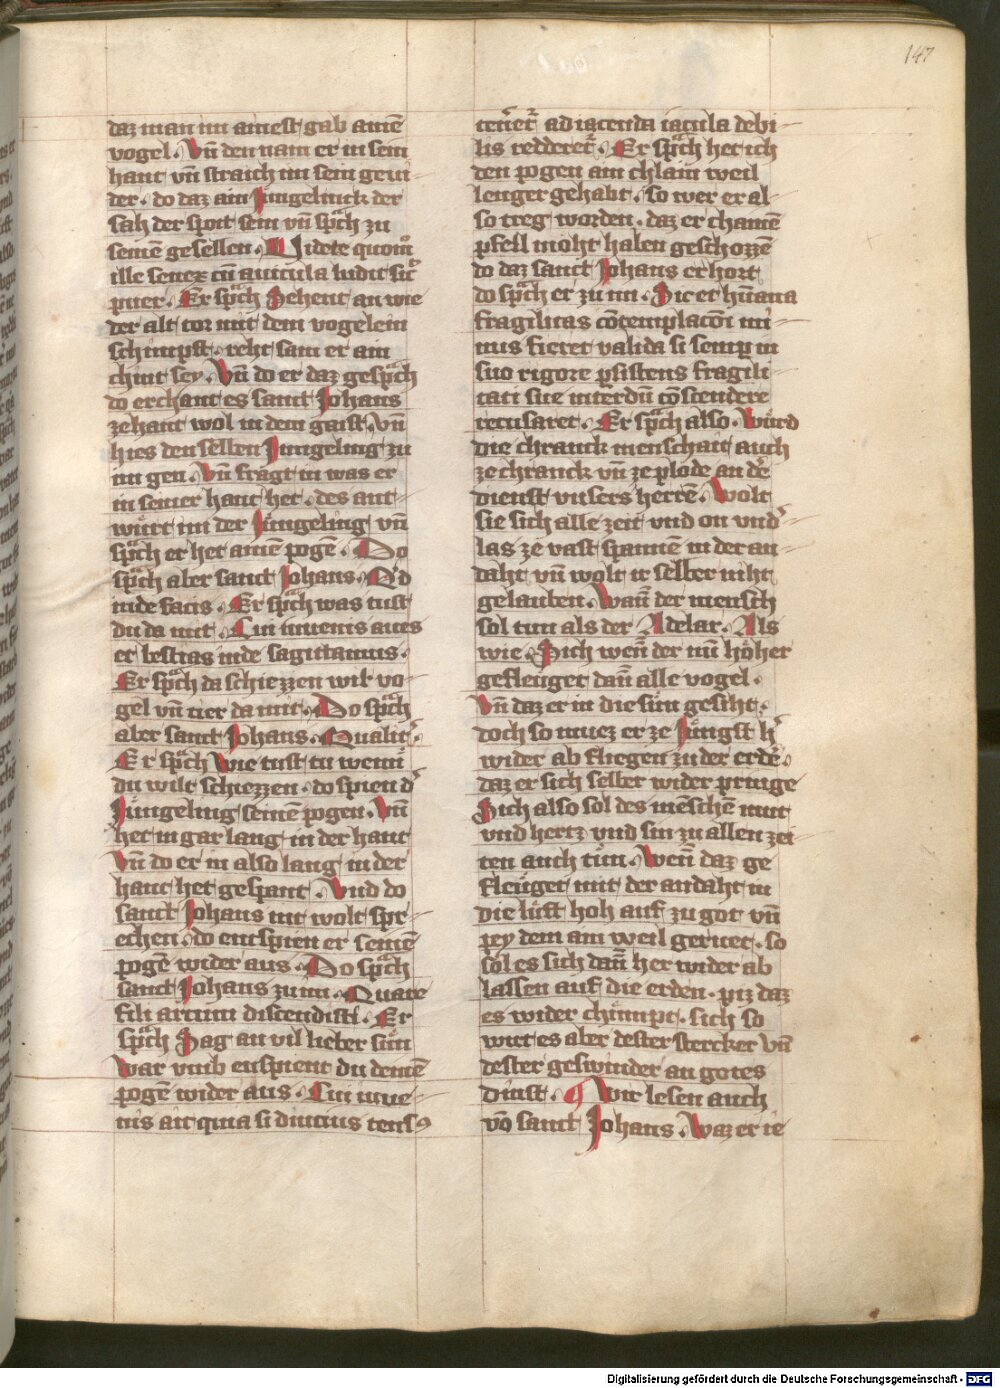 147
daz man im ainest gab ainē
vogel. Vn̄ den nam er in sein
hant vn̄ straich im sein gevi
der. do daz ain Jungelinck der
sah der spott sein vn̄ spͣch zu
seinē gesellen. Videte quom̊
ille senex cū auicula ludit sic̄
puer. Er spͣch Sehent an wie
der alt tor mit dem vogelein
schimpft. reht sam er ain
chint sey. Vn̄ do er daz gespͣch
do erchant es sanct Johans
zehant wol in dem gaist. vn̄
hies den selben Jungeling zu
im gen. Vn̄ fragt in was er
in seiner hant het. des ant
wu̇rt im der Jungeling vn̄
spͣch er het ainē pogē. Do
spͣch aber sanct Johans. Qͦd
inde facis. Er spͣch was tust
du da mit. Cui iuuenis aues
et bestias inde sagittamus.
Er spͣch da schiezzen wir vo-
gel vn̄ tier da mit. Do spͣch
aber sanct Johans. Qualit̄.
Er spͣch Wie tust tu wenn̄
du wilt schiezzen. do spien d̄
Ju̇ngeling seinē pogen. Vn̄
het in gar lang in der hant
Vn̄ do er in also lang in der
hant het gespant. Vnd do
sanct Johans nit wolt spr-
echen. do entspien er seinē
pogē wider aus. Do spͣch
sanct Johans zu im. Quare
fili arcum distendisti. Er
spͣch Sag an vil lieber sun
war vmb enspient du deinē
pogē wider aus. Cui iuue-
nis ait quia si diucius tens9
tener̄et ad iacenda iacula debi-
lis redderet̄. Er spͣch het ich
den pogen ain chlain weil
lenger gehabt. so wer er al-
so treg worden. daz er chainē
pfeil moht haben geschozzē
do daz sanct Johans erhort
do spͣch er zu im. Sic et hūana
fragilitas cōtemplacōi mi-
nus fieret valida si semp in
suo rigore psistens fragili-
tati sue interdū cōscendere
recusaret. Er spͣch also. Wu̇rd
die chranck menschait auch
ze chranck vn̄ ze plode an dē
dienst vnsers herrē. Wolt
sie sich alle zeit vnd on vnd̄-
las ze vast spannē in der an-
daht vn̄ wolt ir selber niht
gelauben. Wan̄ der mensch
sol tun als der Adelar. Als
wie. Sich wen̄ der nu̇ hoher
gefleuget dan̄ alle vogel.
Vn̄ daz er in die sun gesiht.
doch so muez er ze Ju̇ngst h̄
wider ab fliegen zu der erdē.
daz er sich selber wider pringe
Sich also sol des mēschē mut
vnd hertz vnd sin zu allen zei
ten auch tun. Wen̄ daz ge
fleuget mit der andaht in
die lu̇ft hoh auf zu got vn̄
pey dem ain weil geruet. so
sol es sich dan̄ her wider ab
lassen auf die erden. piz daz
es wider chu̇mpt. sich so
wirt es aber dester stercker vn̄
dester geswinder an gotes
dinst. ¶ Wir lesen auch
vō sanct Johans. Waz er ie
Digitalisierung gefördert durch die Deutsche Forschungsgemeinschaft - DFG